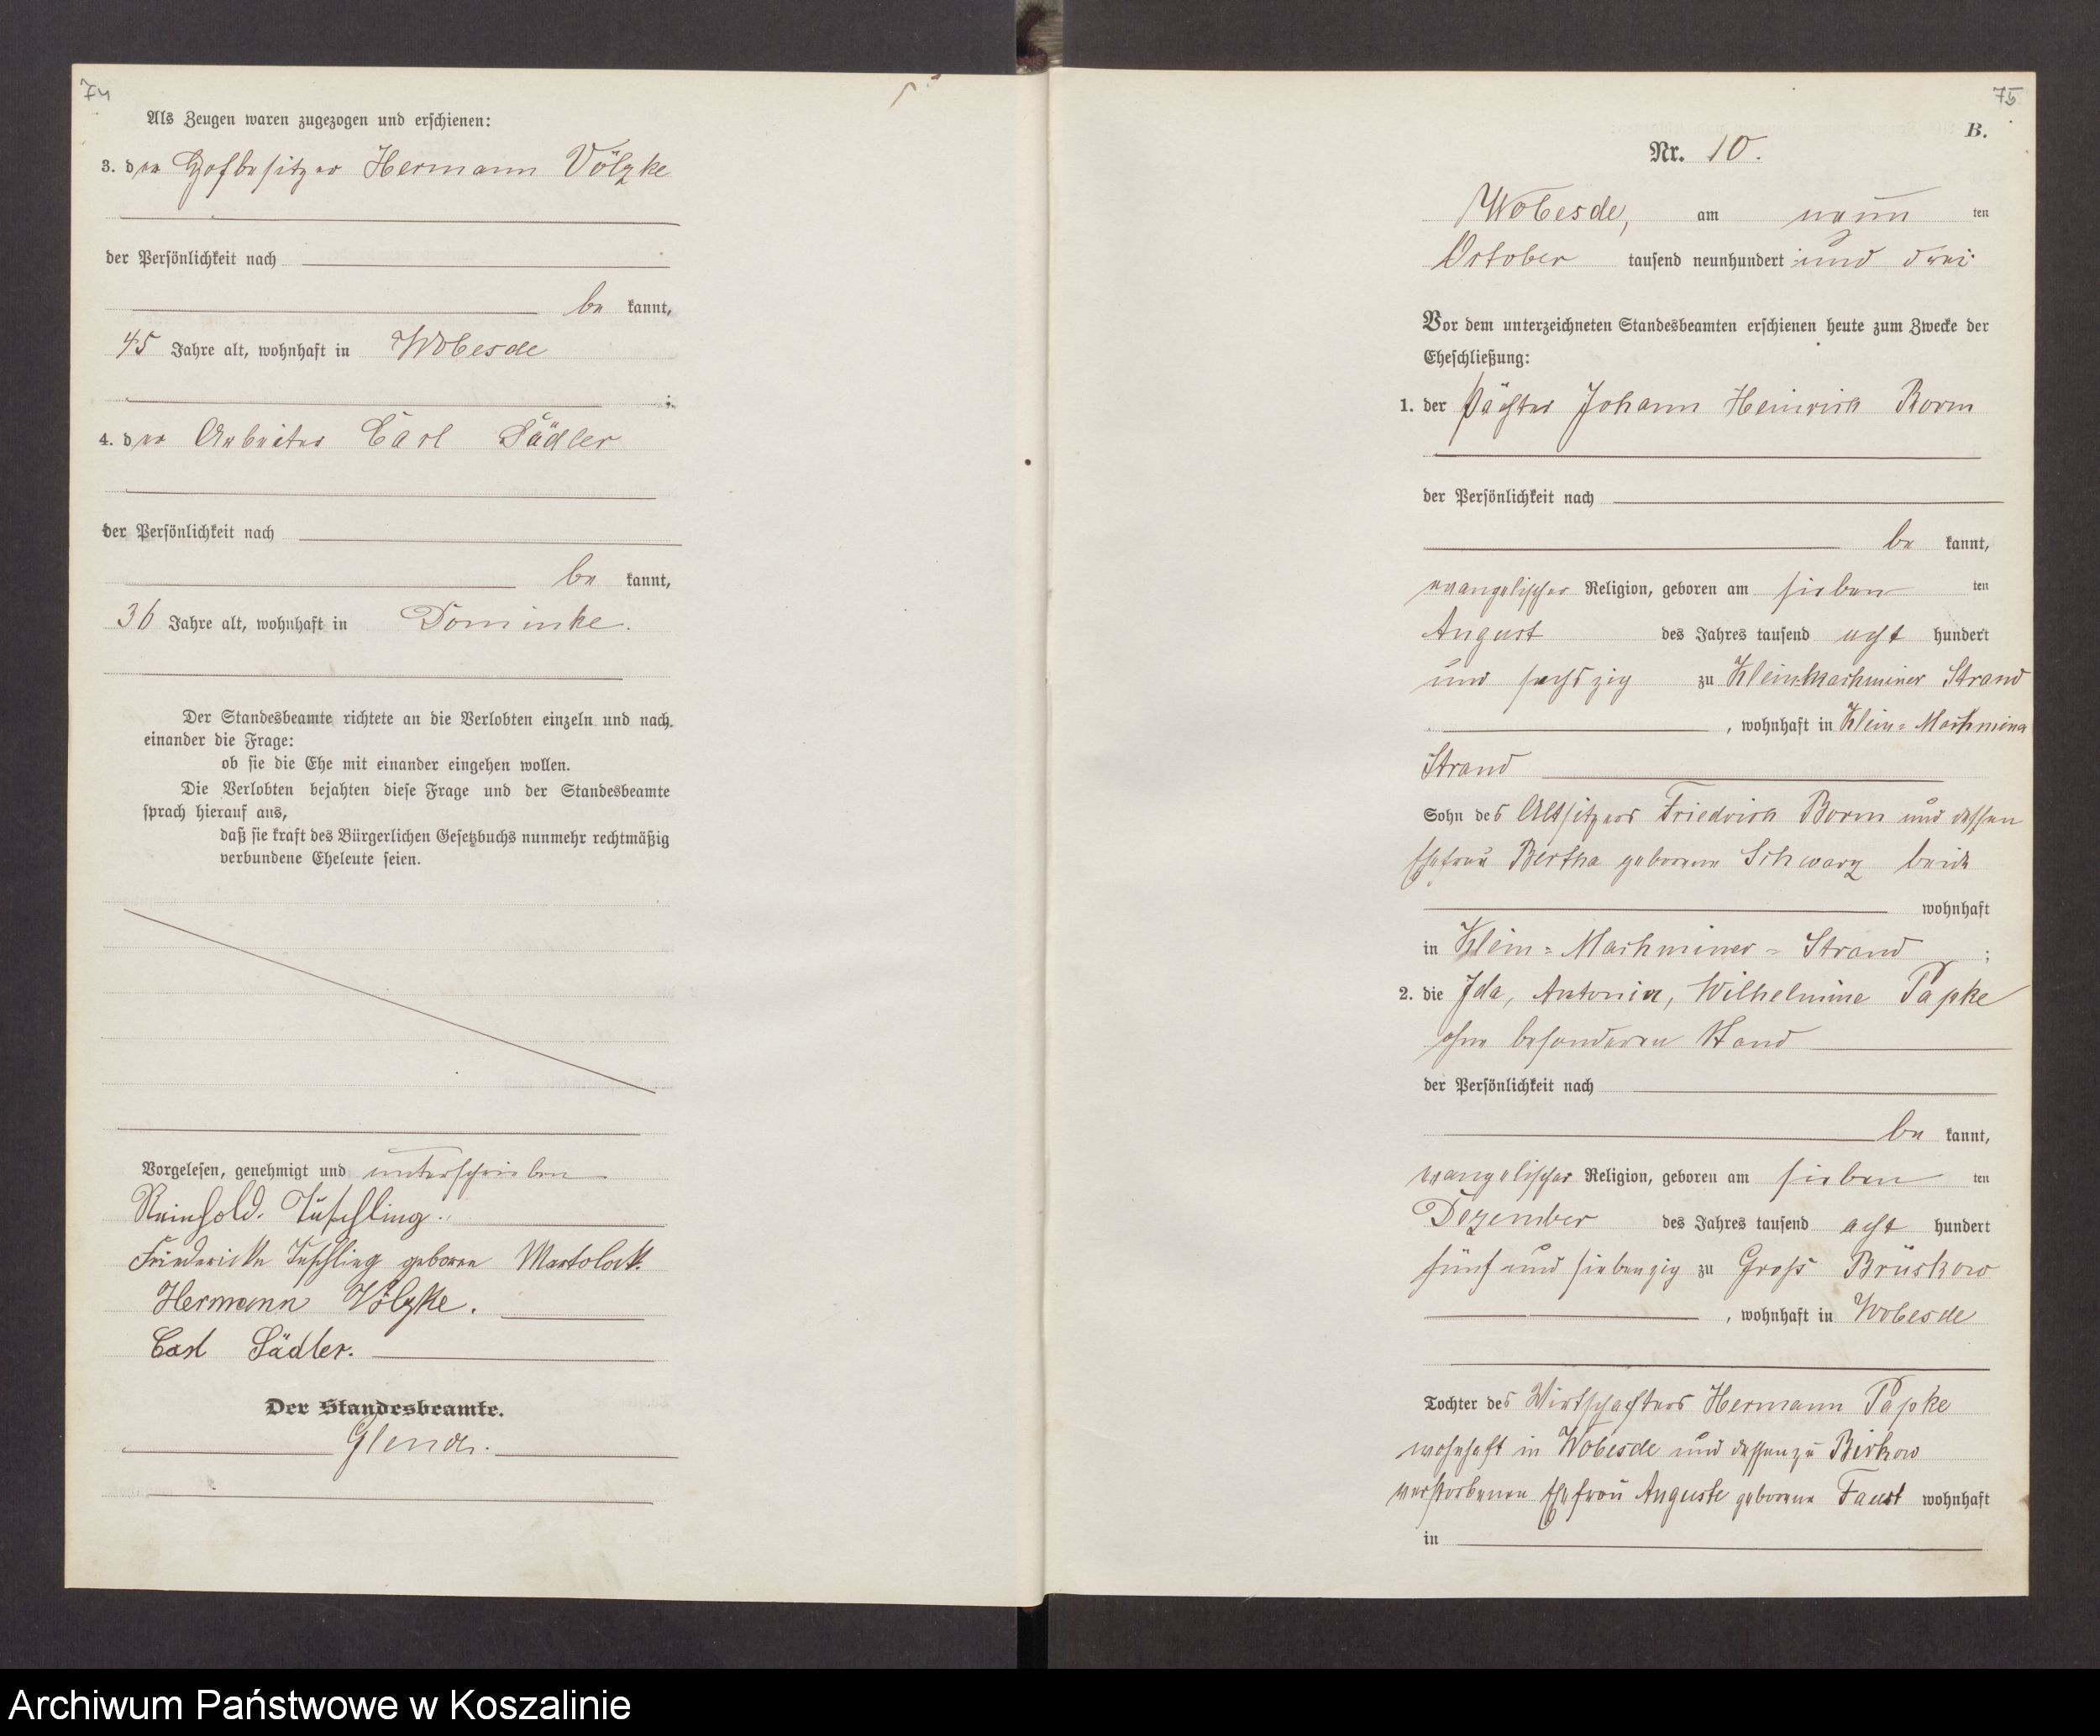 74
Als Zeugen waren zugezogen und erschienen:
3. der Hofbesitzer Hermann Völzke
der Persönlichkeit nach
be kannt,
45 Jahre alt, wohnhaft in Wobesde
;
4. der Arbeiter Carl Sädler
der Persönlichkeit nach
be kannt,
36 Jahre alt, wohnhaft in Dominke.
Der Standesbeamte richtete an die Verlobten einzeln und nach
einander die Frage:
ob sie die Ehe mit einander eingehen wollen.
Die Verlobten bejahten diese Frage und der Standesbeamte
sprach hierauf aus,
daß sie kraft des Bürgerlichen Gesetzbuchs nunmehr rechtmäßig
verbundene Eheleute seien.
Vorgelesen, genehmigt und unterschrieben
Reinhold Tuschling.
Friedericke Tuschling geborene
Hermann Völzke.
Carl Sädler.
Der Standesbeamte.
75
B.
Nr. 10.
Wobesde, am neun ten
October tausend neunhundert und drei
Vor dem unterzeichneten Standesbeamten erschienen heute zum Zwecke der
Eheschließung:
1. der Pächter Johann Heinrich Borm
der Persönlichkeit nach
be kannt,
evangelischer Religion, geboren am sieben ten
August des Jahres tausend acht hundert
und sechszig zu Klein-Machminer Strand
, wohnhaft in Klein-Machminer
Strand
Sohn des Altsitzers Friedrich Borm und dessen
Ehefrau Bertha geborene Schwarz beide
wohnhaft
in Klein-Machminer-Strand ;
2. die Ida, Antonie, Wilhelmine Papke
ohne besonderen Stand
der Persönlichkeit nach
be kannt,
evangelischer Religion, geboren am sieben ten
Dezember des Jahres tausend acht hundert
fünf und siebenzig zu Groß Brüskow
, wohnhaft in Wobesde
Tochter des Wirtschafters Hermann Papke
wohnhaft in Wobesde und dessen zu Birkow
verstorbenen Ehefrau Auguste geborene Faust wohnhaft
in
Archiwum Państwowe w Koszalinie